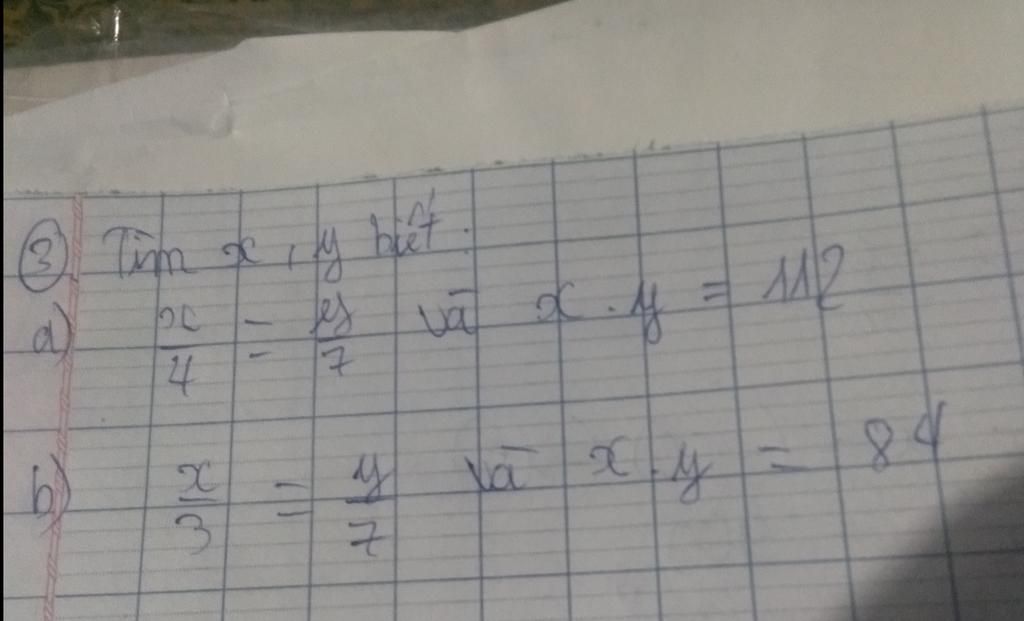 ③ Tìm x, y biết.
a) x/4 = y/7 và x . y = 112
b) x/3 = y/7 và x . y = 84